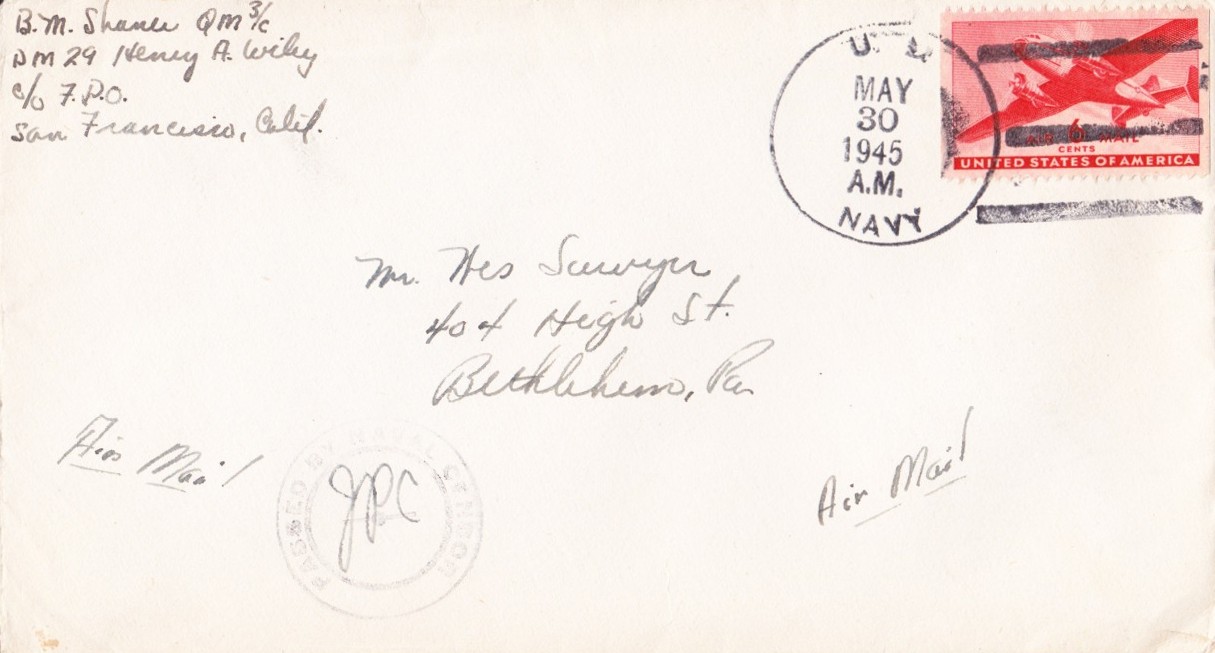 B. M. Shaner QM 3/c
DM 29 Henry A. Wiley
c/o F.P.O.
San Francisco, Calif.
U. S.
MAY
30
1945
A.M.
NAVY
6¢
AIR MAIL
CENTS
UNITED STATES OF AMERICA
Mr. Wes Sawyer
404 High St.
Bethlehem, Pa.
Air Mail
PASSED BY NAVAL CENSOR
JPC
Air Mail